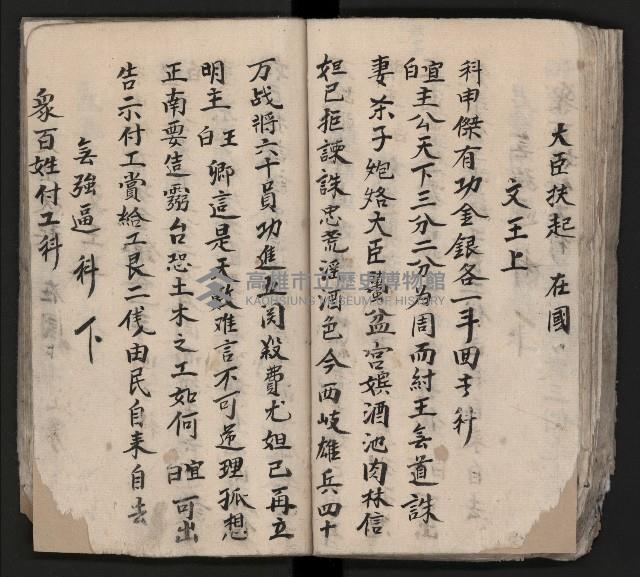 大臣扶起 在國
文王上
科申傑有功金銀各一斗回手科
宜白主公天下三分二分為周而紂王無道誅
妻杀子炮烙大臣蠆盆宮嬪酒池肉林信
妲己拒諫誅忠荒淫酒色今西岐雄兵四十
万战將六十員功進五関殺費尤妲己再立
明主王白卿這是天數难言不可逆理孤想
正南要造霛台恐土木之工如何宜白可出
告示付工賞給工艮二伐由民自来自去
無強逼科下
衆百姓付工科
高雄市立歷史博物館
KAOHSIUNG MUSEUM OF HISTORY